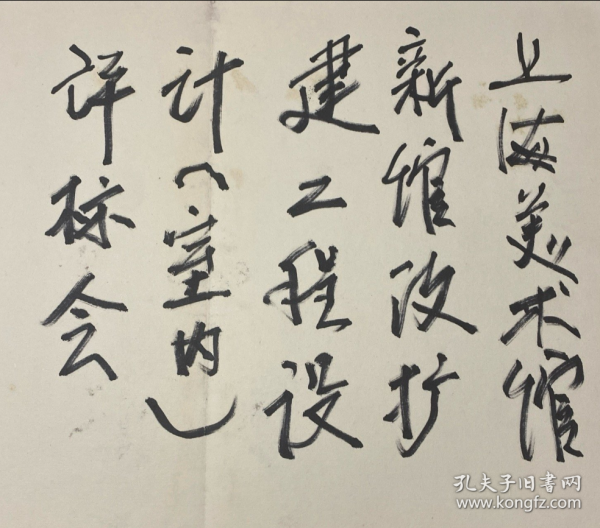 上海美术馆
新馆改扩
建工程设
计（室内）
评标会
孔夫子旧书网
www.kongfz.com